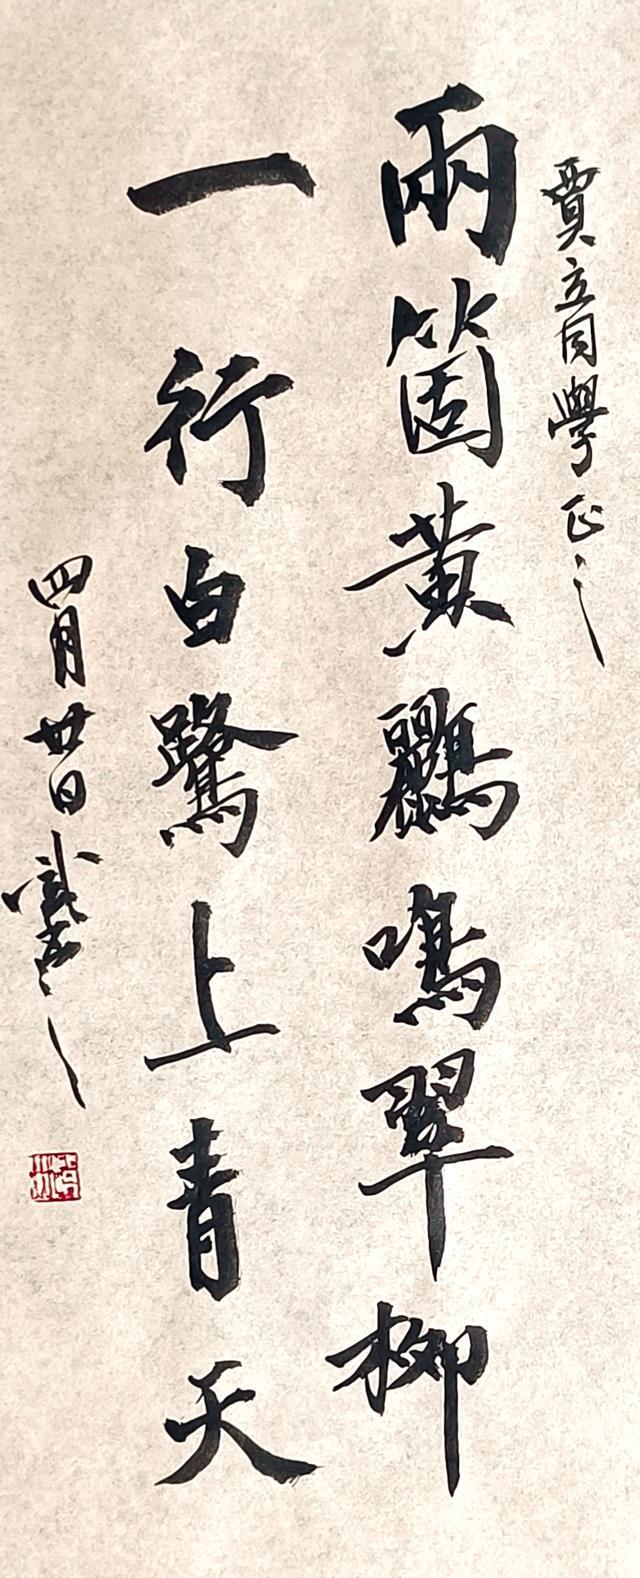 賈立同學正之
兩箇黃鸝鳴翠柳
一行白鷺上青天
四月廿日